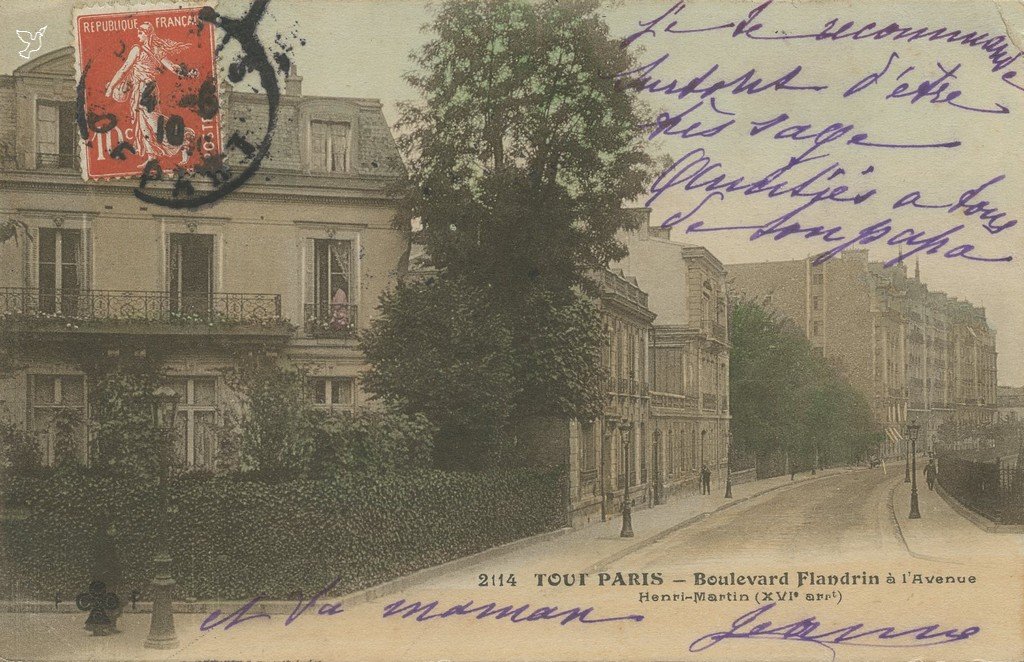 REPUBLIQUE FRANÇAISE
10 c POSTES
4 - 6
10
PARIS
je te recommande
surtout d'être
très sage
Quantjés a tous
de ton papa
2114 TOUT PARIS – Boulevard Flandrin à l'Avenue
Henri-Martin (XVIe arrt)
et ta maman Jeanne